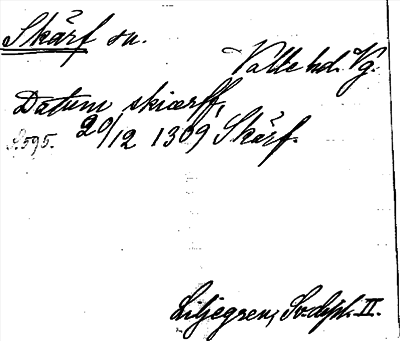 Skärf sn.
Valle hd. Vg.
Datum skiærff,
s. 595. 20/12 1309 Skärf.
Liljegren, Sv. dipl. II.